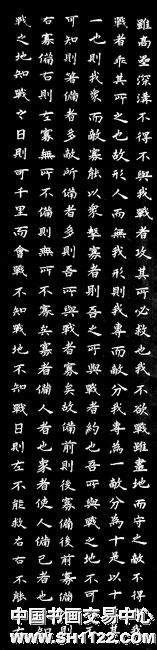 雖高壘深溝不得不與我戰者攻其所必救也我不欲戰雖畫地而守之敵不得
戰者乖其所之也故形人而無我形則我專而敵分我專為一敵分為十是以十
一也則我衆而敵寡能以衆擊寡者則吾之所與戰者約也吾所與戰之地不可
可知則備者多敵所備者多則吾所與戰者寡矣故備前則後寡備後前寡備
右寡備右則左寡無所不備則無所不寡矣寡者備人者也衆者使人備己者也
戰之地知戰之日則可千里而會戰不知戰地不知戰日則左不能救右右不能
中国书画交易中心
www.sh1122.com